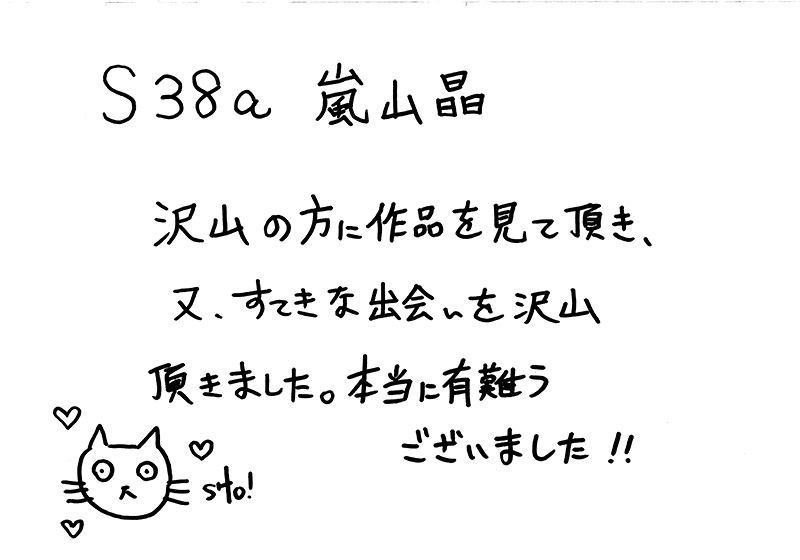 S38a 嵐山晶
沢山の方に作品を見て頂き、
又、すてきな出会いを沢山
頂きました。本当に有難う
ございました!!
sto!